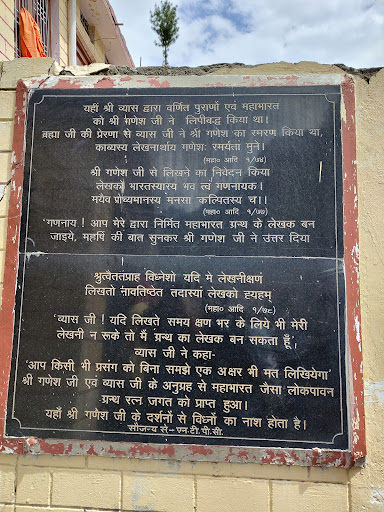 यहीं श्री व्यास द्वारा वर्णित पुराणों एवं महाभारत
को श्री गणेश जी ने लिपीबद्ध किया था।
ब्रह्मा जी की प्रेरणा से व्यास जी ने श्री गणेश का स्मरण किया था,
काव्यस्य लेखनार्थाय गणेशः स्मर्यता मुने।
(महा० आदि १/७४)
श्री गणेश जी से लिखने का निवेदन किया
लेखको भारतस्यास्य भव त्वं गणनायक।
मयैव प्रोच्यमानस्य मनसा कल्पितस्य च।।
(महा० आदि १/७७)
'गणनाय ! आप मेरे द्वारा निर्मित महाभारत ग्रन्थ के लेखक बन
जाइये, महर्षि की बात सुनकर श्री गणेश जी ने उत्तर दिया
श्रुत्वैतत्प्राह विघ्नेशो यदि मे लेखनीक्षणं
लिखतो नावतिष्ठेत तदास्यां लेखको ह्यहम्
(महा० आदि १/७८)
'व्यास जी ! यदि लिखते समय क्षण भर के लिये भी मेरी
लेखनी न रूके तो मैं ग्रन्थ का लेखक बन सकता हूँ,
व्यास जी ने कहा-
'आप किसी भी प्रसंग को बिना समझे एक अक्षर भी मत लिखियेगा'
श्री गणेश जी एवं व्यास जी के अनुग्रह से महाभारत जैसा लोकपावन
ग्रन्थ रत्न जगत को प्राप्त हुआ।
यहाँ श्री गणेश जी के दर्शनों से विघ्नों का नाश होता है।
सौजन्य से-एन.टी.पी.सी.